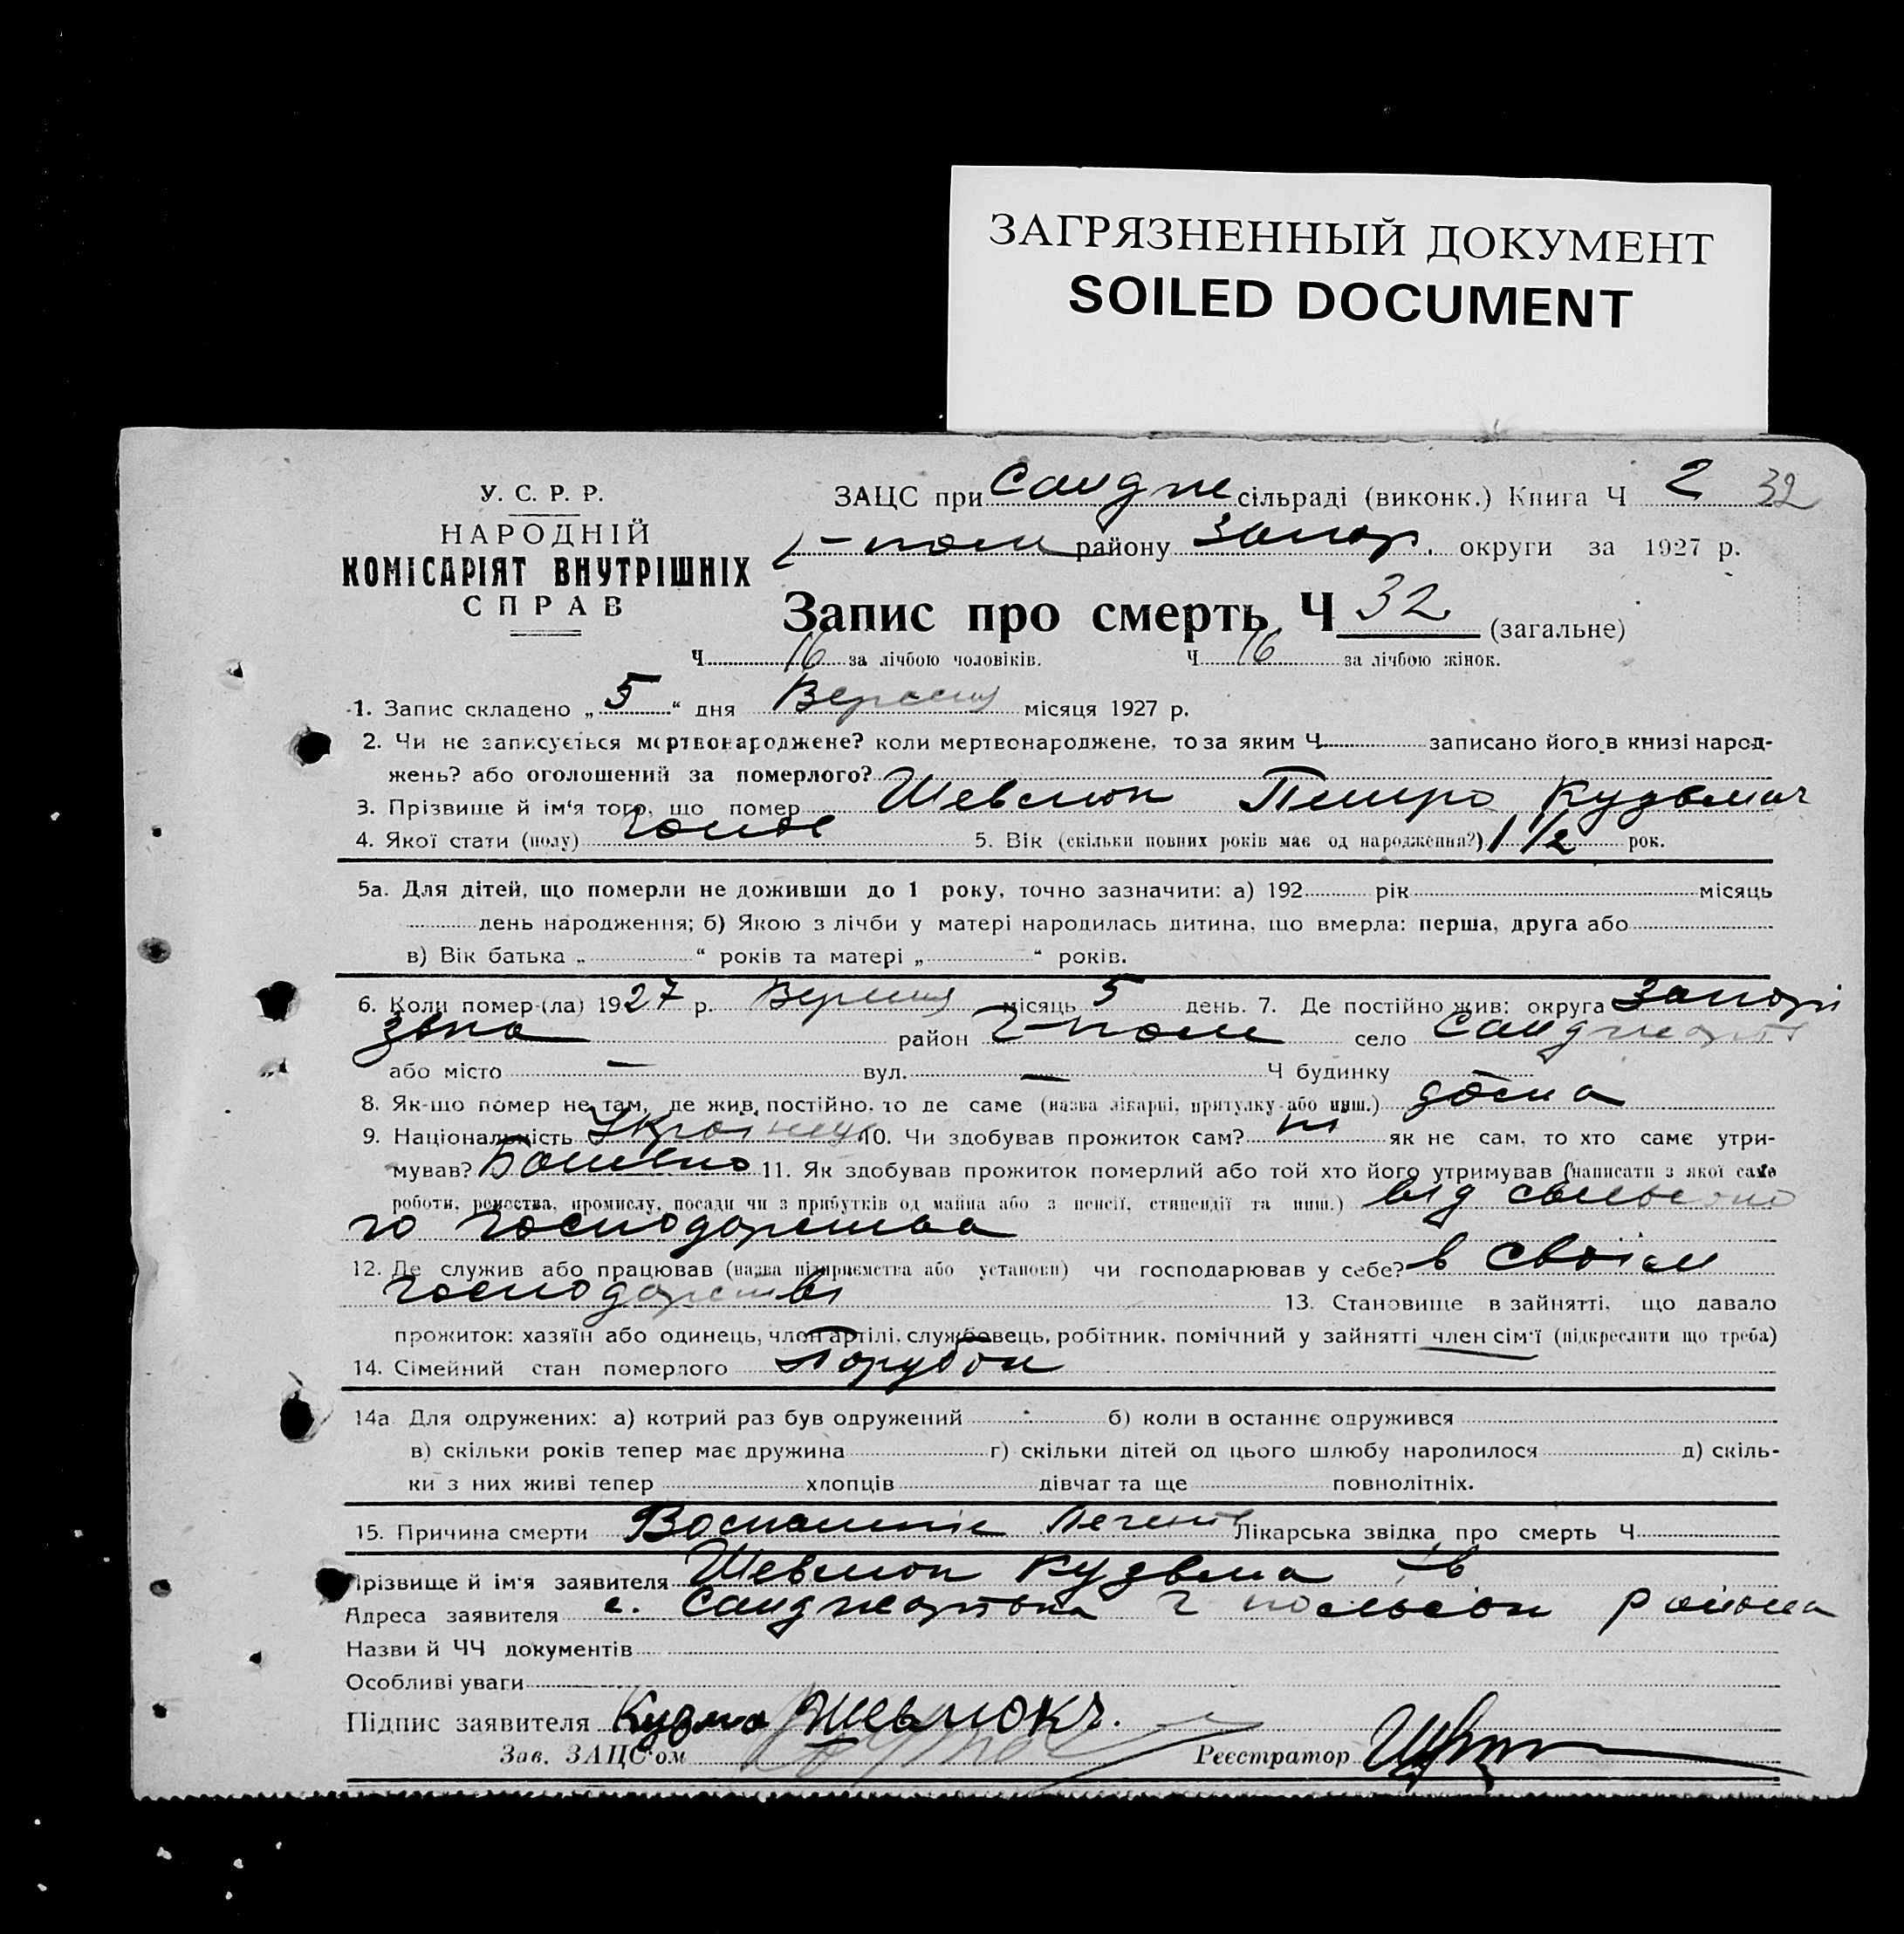 ЗАГРЯЗНЕННЫЙ ДОКУМЕНТ
SOILED DOCUMENT
У. С. Р. Р.
НАРОДНІЙ
КОМІСАРІЯТ ВНУТРІШНІХ
СПРАВ
ЗАЦС при Сандж сільраді (виконк.) Книга Ч 2 32
Г-поль району Запор. округи за 1927 р.
Запис про смерть Ч 32 (загальне)
Ч 16 за лічбою чоловіків. Ч 16 за лічбою жінок.
1. Запис складено „ 5 “ дня Вересня місяця 1927 р.
2. Чи не записується мертвонароджене? коли мертвонароджене, то за яким Ч записано його в книзі народ-
жень? або оголошений за померлого?
3. Прізвище й ім'я того, що помер Шевлюк Петро Кузьмич
4. Якої стати (полу) чолов 5. Вік (скільки повних років має од народження?) 1 1/2 рок.
5а. Для дітей, що померли не доживши до 1 року, точно зазначити: а) 192 рік місяць
день народження; б) Якою з лічби у матері народилась дитина, що вмерла: перша, друга або
в) Вік батька „ “ років та матері „ “ років.
6. Коли помер (ла) 1927 р. Вересня місяць 5 день. 7. Де постійно жив: округа Запорі
зька район Г-поль село Санджарівк
або місто — вул. — Ч будинку
8. Як-що помер не там, де жив постійно, то де саме (назва лікарні, притулку або инш.) дома
9. Національність Українец 10. Чи здобував прожиток сам? ні як не сам, то хто саме утри-
мував? Батько 11. Як здобував прожиток померлий або той хто його утримував (написати з якої саме
роботи, ремества, промислу, посади чи з прибутків од майна або з пенсії, стипендії та инш.) від сільсько
го господарства
12. Де служив або працював (назва підприємства або установи) чи господарював у себе? в своїм
господарстві 13. Становище в зайнятті, що давало
прожиток: хазяїн або одинець, член артілі, службовець, робітник, помічний у зайнятті член сім'ї (підкреслити що треба)
14. Сімейний стан померлого Парубок
14а. Для одружених: а) котрий раз був одружений б) коли в останнє одружився
в) скільки років тепер має дружина г) скільки дітей од цього шлюбу народилося д) скіль-
ки з них живі тепер хлопців дівчат та ще повнолітніх.
15. Причина смерти Воспаленіе Легень Лікарська звідка про смерть Ч
Прізвище й ім'я заявителя Шевлюк Кузьма
Адреса заявителя с. Санджарівка Г польськи района
Назви й ЧЧ документів
Особливі уваги
Підпис заявителя Кузма Шевлюк
Зав. ЗАЦС'ом Реєстратор